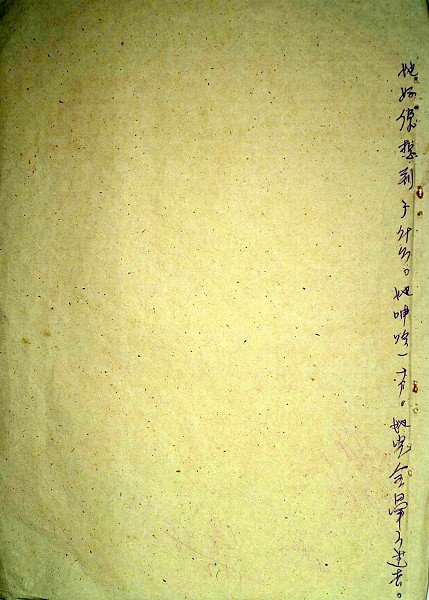 她好像想到了什么。她呻吟一声。她完全晕了过去。